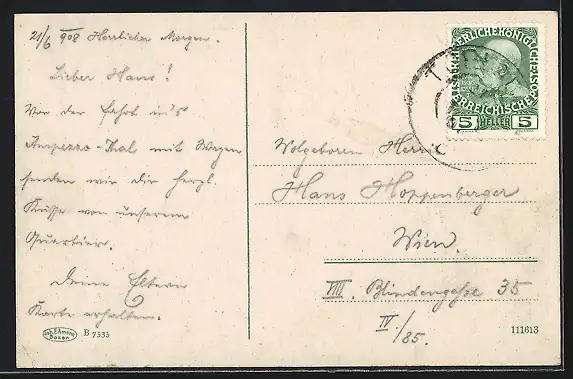 21/6 908 Herrlicher Morgen.
Lieber Hans!
Vor der Fahrt in's
Ampezzo-Thal mit Wagen
senden wir dir herzl.
Küsse von unserem
Quartier.
Deine Eltern
Karte erhalten.
Joh. F. Amonn
Bozen
B 7535
KAISERLICHEKÖNIGLICHE
ÖSTERREICHISCHE
5 HELLER 5
Wolgeboren Herrn
Hans Hoppenberger
Wien.
VIII. Blindengasse 35
IV./85.
111613